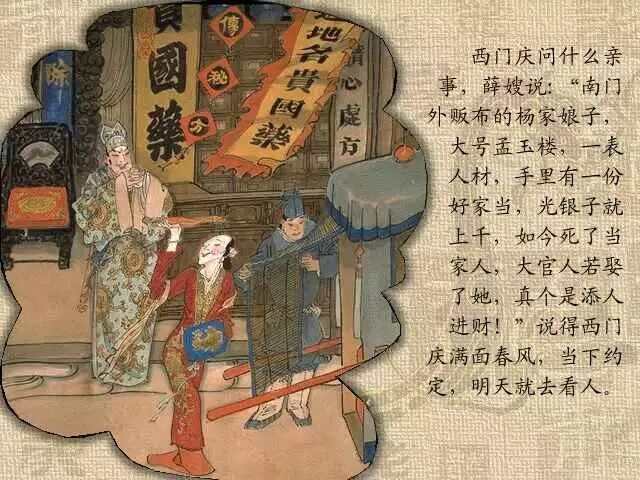 西门庆问什么亲
事，薛嫂说：“南门
外贩布的杨家娘子，
大号孟玉楼，一表
人材，手里有一份
好家当，光银子就
上千，如今死了当
家人，大官人若娶
了她，真个是添人
进财！”说得西门
庆满面春风，当下约
定，明天就去看人。
貴國藥
傳
秘
地名貴國藥
精心處方